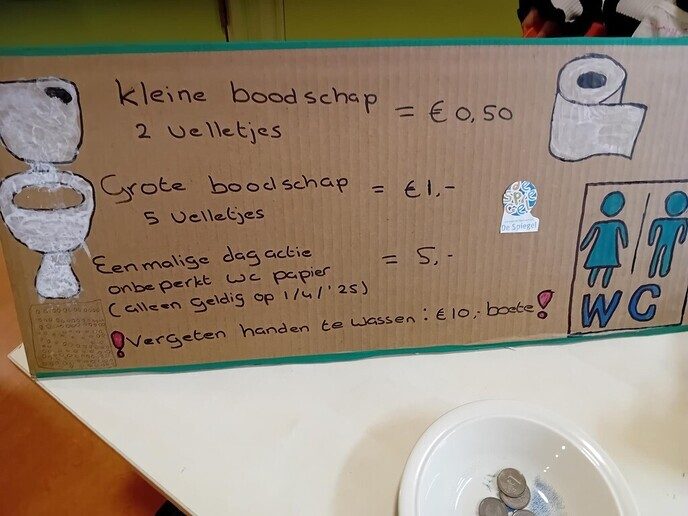 Kleine boodschap = € 0,50
2 velletjes
Grote boodschap = €1,-
5 velletjes
Eenmalige dagactie = 5,-
onbeperkt wc papier
(alleen geldig op 1/4/'25)
! Vergeten handen te wassen: €10,- boete!
De Spiegel
WC